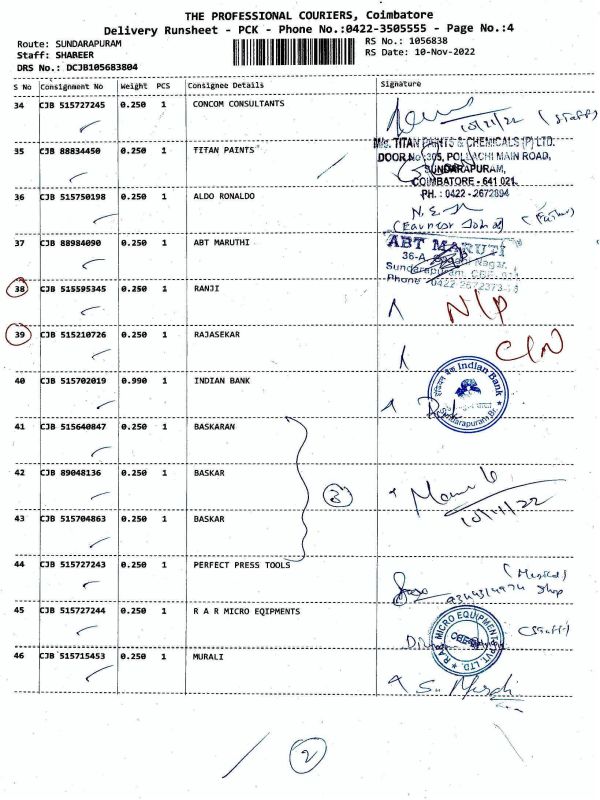 THE PROFESSIONAL COURIERS, Coimbatore
Delivery Runsheet - PCK - Phone No.:0422-3505555 - Page No.:4
Route: SUNDARAPURAM
Staff: SHAREER
DRS No.: DCJB105683804
RS No.: 1056838
RS Date: 10-Nov-2022
S No Consignment No Weight PCS Consignee Details Signature
34 CJB 515727245 0.250 1 CONCOM CONSULTANTS
10/11/22 (Staff)
35 CJB 88834450 0.250 1 TITAN PAINTS
M/s. TITAN PAINTS & CHEMICALS (P) LTD.
DOOR No: 305, POLLACHI MAIN ROAD,
SUNDARAPURAM,
COIMBATORE - 641 021.
PH. : 0422 - 2672894
36 CJB 515750198 0.250 1 ALDO RONALDO
(Father)
37 CJB 88984090 0.250 1 ABT MARUTHI
ABT MARUTI
36-A, Nagar,
Sundarapuram, CBE
Phone 0422 2672373
38 CJB 515595345 0.250 1 RANJI
N/P
39 CJB 515210726 0.250 1 RAJASEKAR
C/N
40 CJB 515702019 0.990 1 INDIAN BANK
Indian Bank
Sundarapuram Br.
41 CJB 515640847 0.250 1 BASKARAN
42 CJB 89048136 0.250 1 BASKAR
3
10/11/22
43 CJB 515704863 0.250 1 BASKAR
44 CJB 515727243 0.250 1 PERFECT PRESS TOOLS
shop
45 CJB 515727244 0.250 1 R A R MICRO EQIPMENTS
R.A.R. MICRO EQUIPMENTS PVT LTD.
(Staff)
46 CJB 515715453 0.250 1 MURALI
2